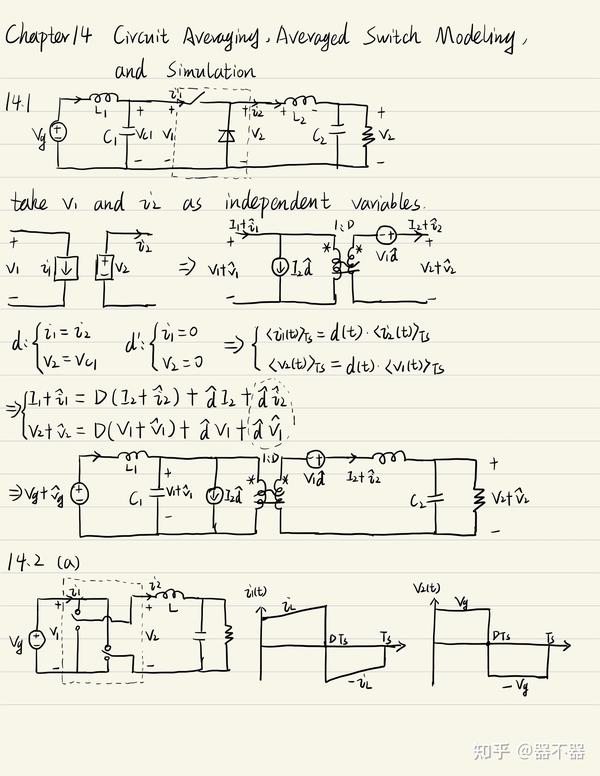 Chapter 14 Circuit Averaging, Averaged Switch Modeling,
and Simulation
14.1
Vg L₁ C₁ Vc1 i₁ V₁ V₂ i₂ L₂ C₂ V₂
take v₁ and i₂ as independent variables.
V₁ i₁ V₂ i₂ ⇒ I₁+î₁ V₁+v̂₁ I₂d̂ 1:D V₁d̂ I₂+î₂ V₂+v̂₂
d: { i₁ = i₂ d': { i₁=0 ⇒ { <i₁(t)>Ts = d(t)·<i₂(t)>Ts
V₂ = Vc1 V₂=0 <v₂(t)>Ts = d(t)·<v₁(t)>Ts
⇒ { I₁+î₁ = D(I₂+î₂) + d̂I₂ + d̂î₂
V₂+v̂₂ = D(V₁+v̂₁) + d̂V₁ + d̂v̂₁
⇒ Vg+v̂g L₁ C₁ V₁+v̂₁ I₂d̂ 1:D V₁d̂ I₂+î₂ C₂ V₂+v̂₂
14.2 (a)
Vg i₁ V₁ i₂ V₂ L
i₁(t) iL DTs Ts -iL
V₂(t) Vg DTs Ts -Vg
知乎 @器不器